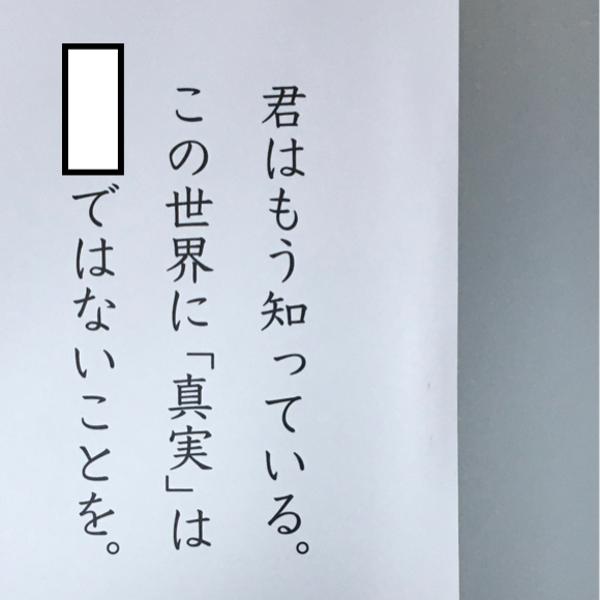 君はもう知っている。
この世界に「真実」は
ではないことを。